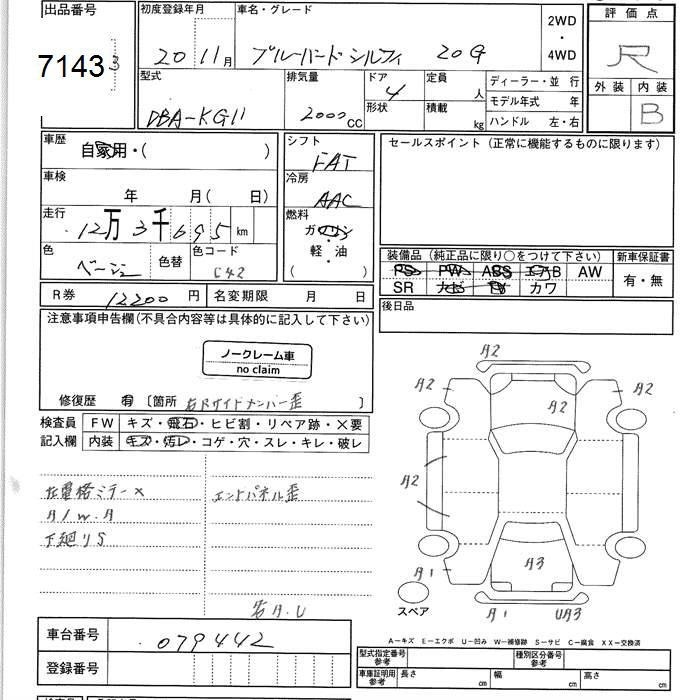 出品番号
7143
初度登録年月
20 11月
車名・グレード
ブルーバードシルフィ 20G
2WD
・
4WD
評価点
R
外装 内装
B
型式
DBA-KG11
排気量
2000CC
ドア
4
形状
定員
人
積載
kg
ディーラー・並 行
モデル年式 年
ハンドル 左・右
車歴
自家用・( )
車検
年 月( 日)
走行
12万3千695km
色
ベージュ
色替
色コード
C42
シフト
FAT
冷房
AAC
燃料
ガソリン
・
軽 油
( )
セールスポイント(正常に機能するものに限ります)
装備品(純正品に限り○をつけて下さい)
PS PW ABS エアB AW
SR ナビ TV カワ
新車保証書
有・無
R券 12200円
名変期限 月 日
後日品
注意事項申告欄(不具合内容等は具体的に記入して下さい)
ノークレーム車
no claim
修復歴 有 〔箇所 右Rサイドメンバー歪 〕
検査員
記入欄
FW キズ・飛石・ヒビ割・リペア跡・×要
内装 キズ・汚レ・コゲ・穴・スレ・キレ・破レ
左電格ミラー×
A/W.A
下廻りS
エンドパネル歪
A.U
A2
A2
A2
A2
A2
A3
A1
A1
A1
UA3
スペア
車台番号
079442
登録番号
A-キズ E-エクボ U-凹み W-補修跡 S-サビ C-腐食 XX-交換済
型式指定番号
参考
種別区分番号
参考
車庫証明用
参考
長さ cm
幅 cm
高さ cm